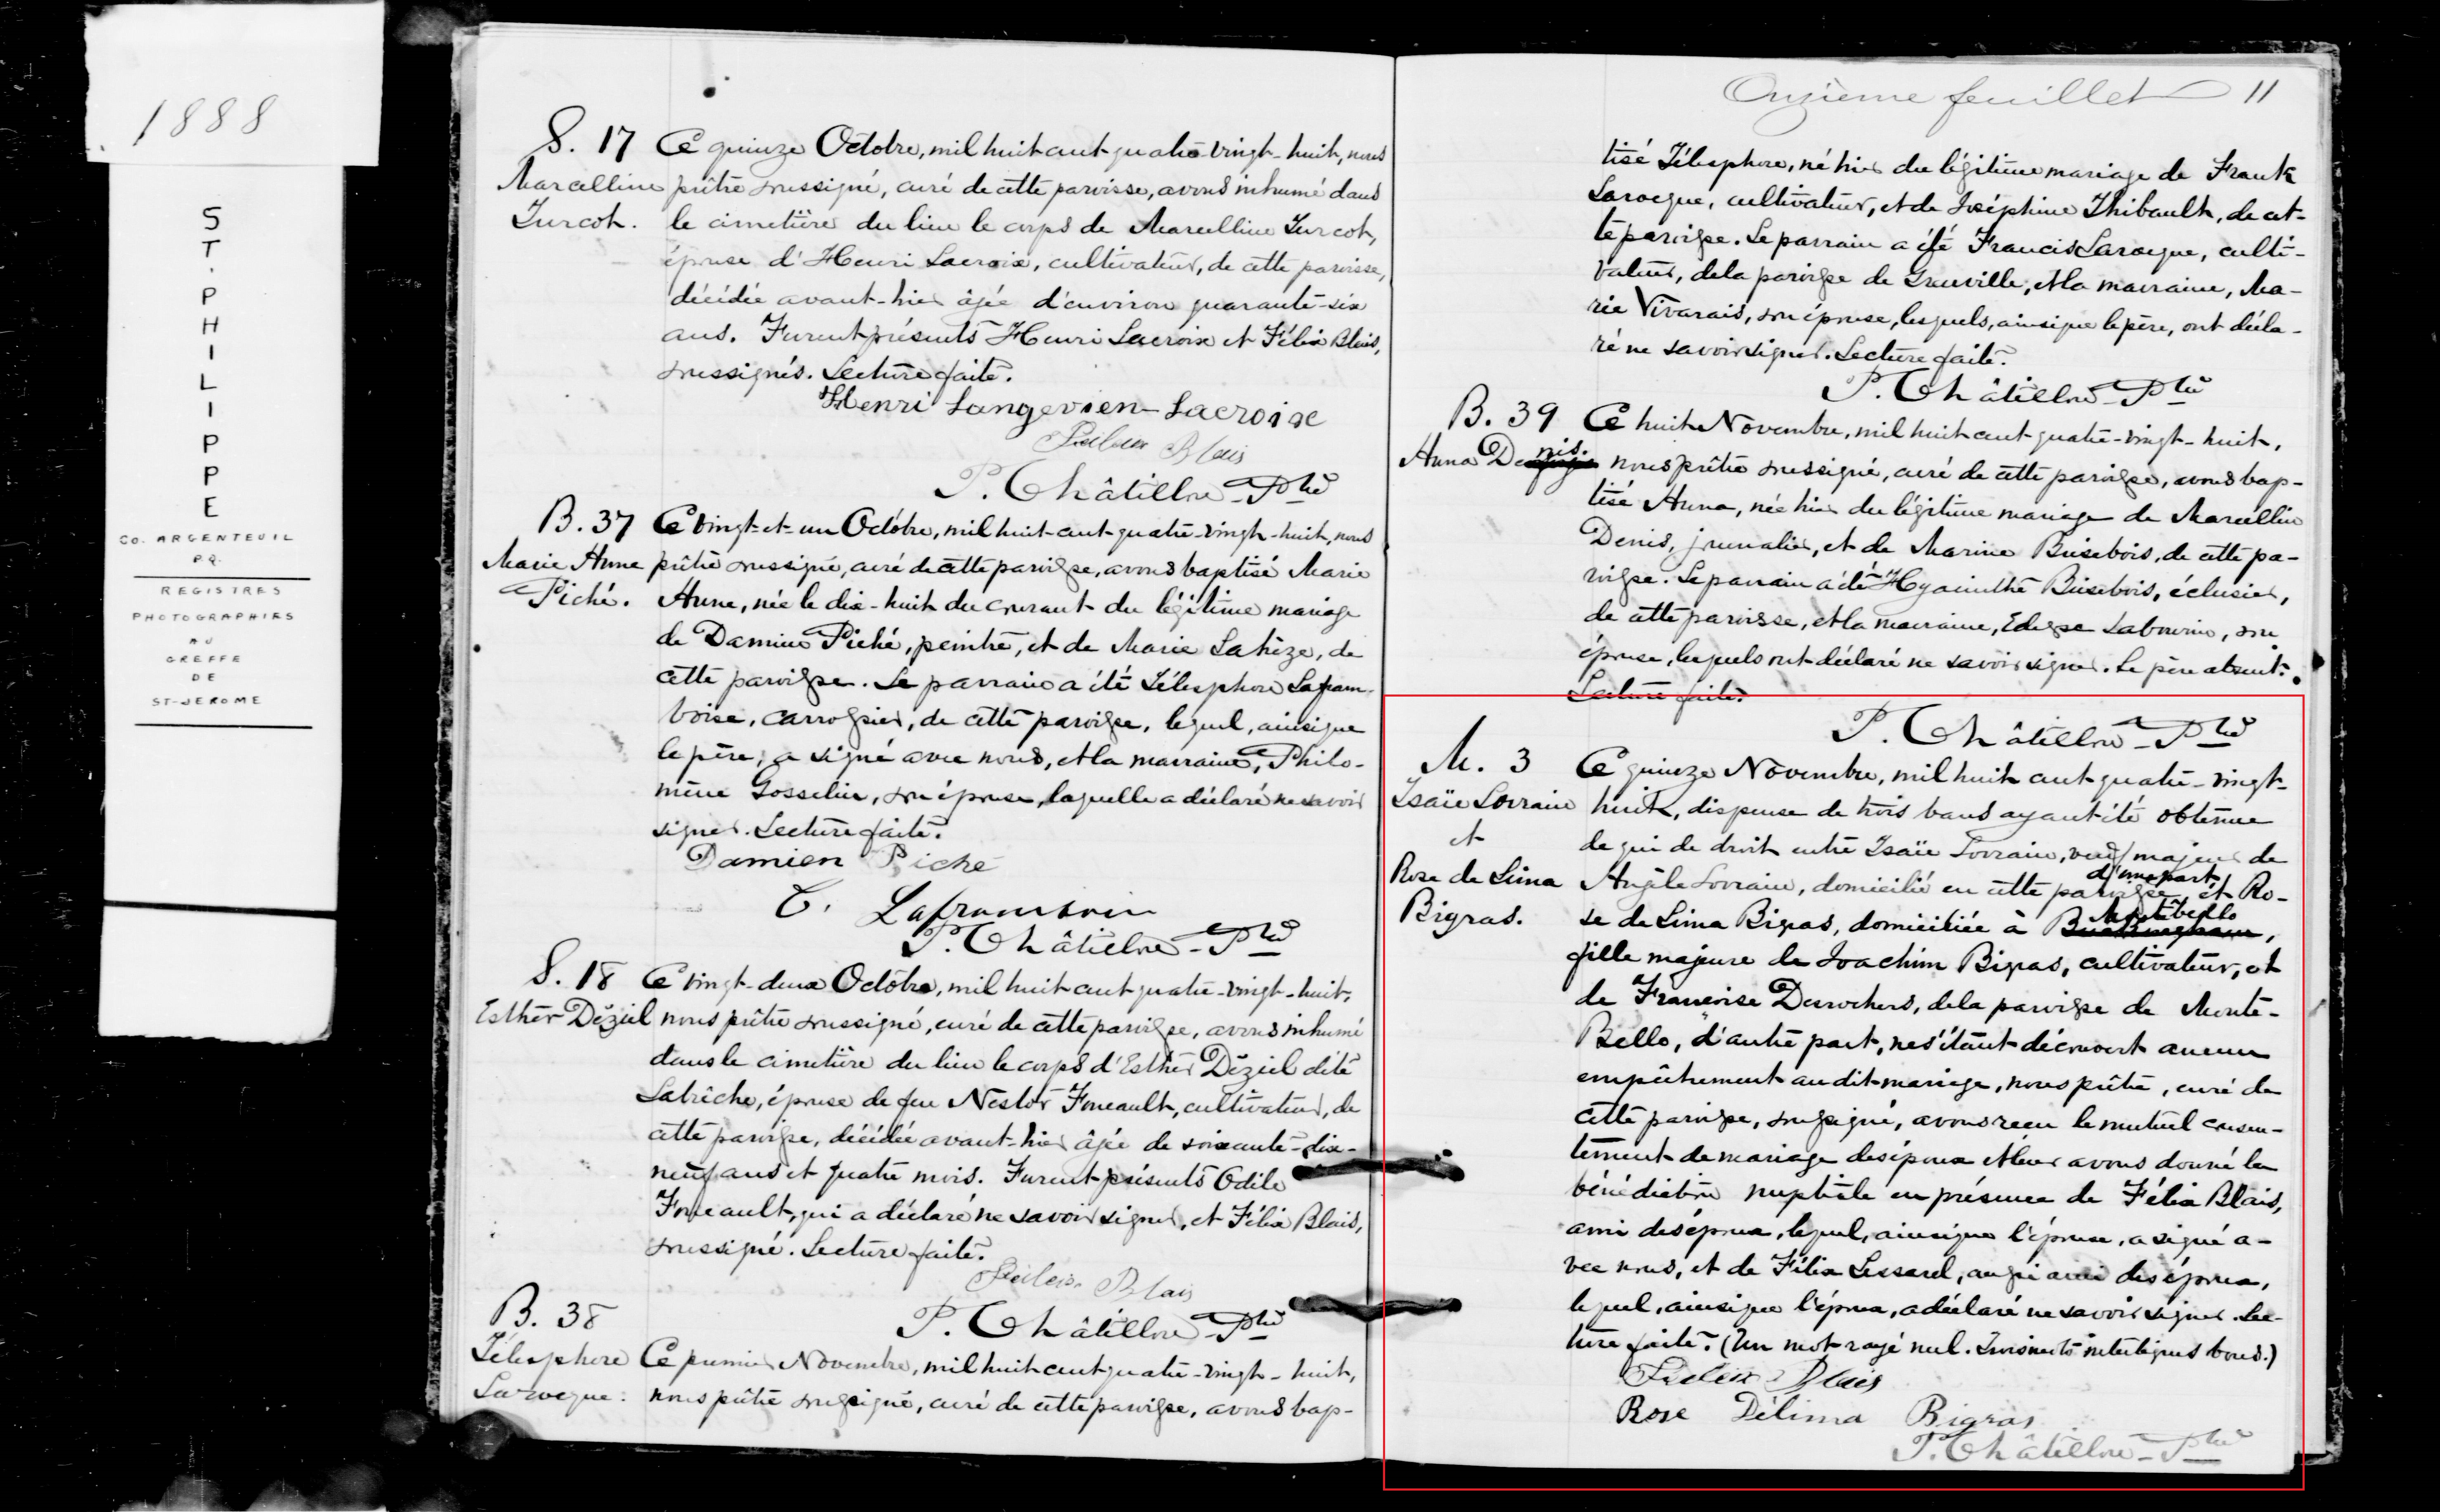 1888
ST. PHILIPPE
CO. ARGENTEUIL
P.Q.
REGISTRES
PHOTOGRAPHIES
AU
GREFFE
DE
ST-JEROME
S. 17
Marcelline
Turcot.
Ce quinze Octobre, mil huit cent quatre-vingt-huit, nous
prêtre soussigné, curé de cette paroisse, avons inhumé dans
le cimetière du lieu le corps de Marcelline Turcot,
épouse d'Henri Lacroix, cultivateur, de cette paroisse,
décédée avant-hier âgée d'environ quarante-six
ans. Furent présents Henri Lacroix et Félix Blais,
soussignés. Lecture faite.
Henri Langevien-Lacroix
Felix Blais
P. Châtillon-Ptre
B. 37
Marie Anne
Piché.
Ce vingt-et-un Octobre, mil huit-cent-quatre-vingt-huit, nous
prêtre soussigné, curé de cette paroisse, avons baptisé Marie
Anne, née le dix-huit du courant du légitime mariage
de Damien Piché, peintre, et de Marie de
cette paroisse. Le parrain a été Télesphore Lafram-
boise, carrossier, de cette paroisse, lequel, ainsi que
le père, a signé avec nous, et la marraine, Philo-
mène Gosselin, son épouse, laquelle a déclaré ne savoir
signer. Lecture faite.
Damien Piché
T. Laframboise
P. Châtillon-Ptre
S. 18
Esther Déziel
Ce vingt-deux Octobre, mil huit-cent-quatre-vingt-huit,
nous prêtre soussigné, curé de cette paroisse, avons inhumé
dans le cimetière du lieu le corps d'Esther Déziel dite
Labrèche, épouse de feu Nestor Foucault, cultivateur, de
cette paroisse, décédée avant-hier âgée de soixante-dix-
neuf ans et quatre mois. Furent présents Odile
Foucault, qui a déclaré ne savoir signer, et Félix Blais,
soussigné. Lecture faite.
Felix Blais
P. Châtillon-Ptre
B. 38
Télesphore
Larocque.
Ce premier Novembre, mil huit cent quatre-vingt-huit,
nous prêtre soussigné, curé de cette paroisse, avons bap-
Onzième feuillet 11
tisé Télesphore, né hier du légitime mariage de Frank
Larocque, cultivateur, et de Joséphine Thibault, de cet-
te paroisse. Le parrain a été Francis Larocque, culti-
vateur, de la paroisse de Grenville, et la marraine, Ma-
rie Vivarais, son épouse, lesquels, ainsi que le père, ont décla-
ré ne savoir signer. Lecture faite.
P. Châtillon-Ptre
B. 39
Anna Denis.
Ce huit Novembre, mil huit cent quatre-vingt-huit,
nous prêtre soussigné, curé de cette paroisse, avons bap-
tisé Anna, née hier du légitime mariage de Marcellin
Denis, journalier, et de Marine Brisebois, de cette pa-
roisse. Le parrain a été Hyacinthe Brisebois, éclusier,
de cette paroisse, et la marraine, Labourin, son
épouse, lesquels ont déclaré ne savoir signer. Le père absent.
Lecture faite.
P. Châtillon-Ptre
M. 3
Isaïe Lorrain
et
Rose de Lima
Bigras.
Ce quinze Novembre, mil huit cent quatre-vingt-
huit, dispense de trois bans ayant été obtenue
de qui de droit entre Isaïe Lorrain, veuf majeur de
Angèle Lorrain, domicilié en cette paroisse d'une part, et Ro-
se de Lima Bigras, domiciliée à Buckingham Montebello,
fille majeure de Joachim Bigras, cultivateur, et
de Françoise Desrochers, de la paroisse de Monte-
Bello, d'autre part, ne s'étant découvert aucun
empêchement au dit mariage, nous prêtre, curé de
cette paroisse, soussigné, avons reçu le mutuel consen-
tement de mariage des époux et leur avons donné la
bénédiction nuptiale en présence de Félix Blais,
ami des époux, lequel, ainsi que l'épouse, a signé a-
vec nous, et de Félix Lessard, aussi ami des époux,
lequel, ainsi que l'époux, a déclaré ne savoir signer. Lec-
ture faite. (Un mot rayé nul. Trois mots interlignes bons.)
Felix Blais
Rose Délima Bigras
P. Châtillon-Ptre